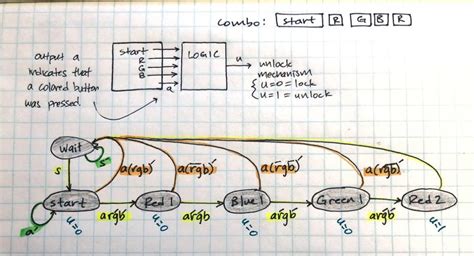 combo: start R G B R
output a
indicates that
a colored button
was pressed.
start
R
G
B
a
LOGIC
u
unlock
mechanism
u=0 = lock
u=1 = unlock
wait
s'
s
a(rgb)' a(rgb)' a(rgb)' a(rgb)'
start Red 1 Blue 1 Green 1 Red 2
a' argb argb argb argb
u=0 u=0 u=0 u=0 u=1